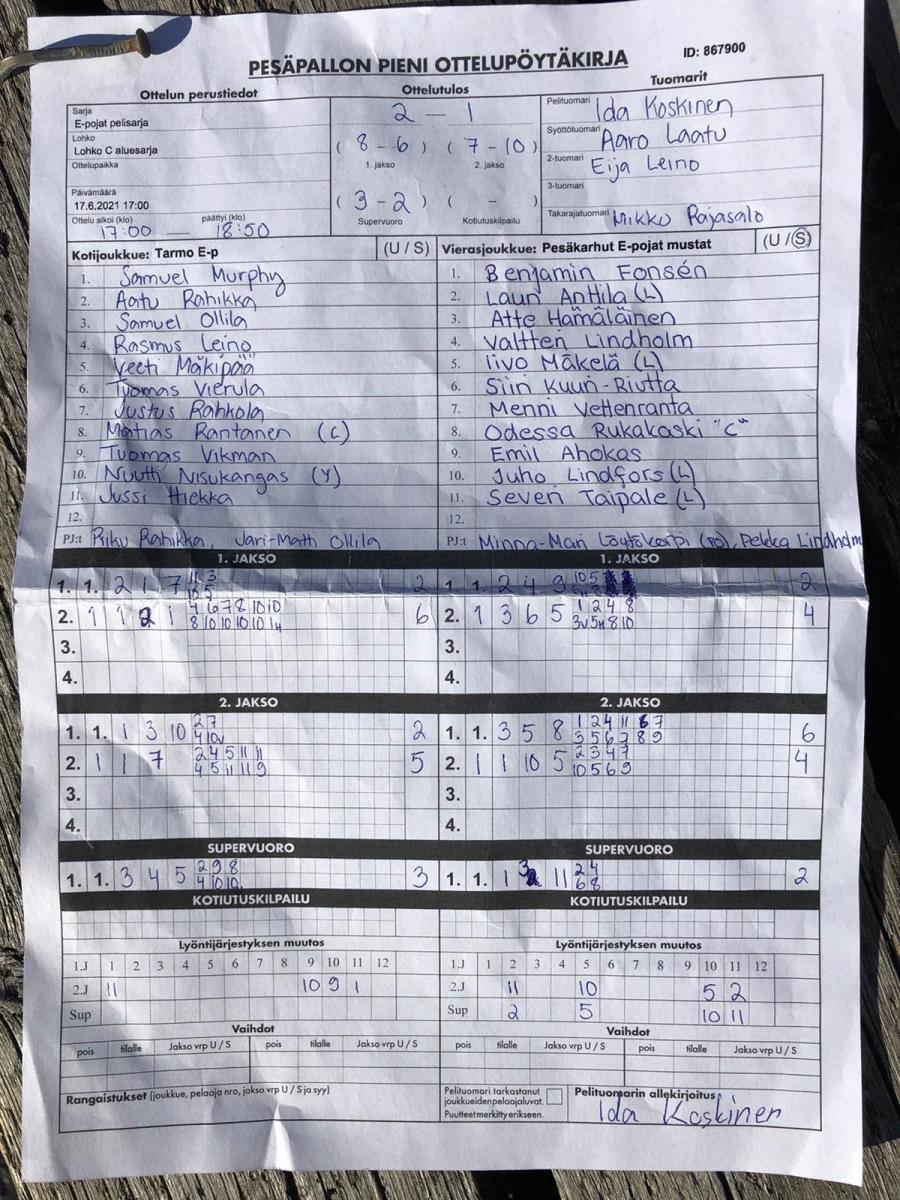 PESÄPALLON PIENI OTTELUPÖYTÄKIRJA
ID: 867900
Ottelun perustiedot
Ottelutulos
Tuomarit
Sarja
E-pojat pelisarja
Lohko
Lohko C aluesarja
Ottelupaikka
Päivämäärä
17.6.2021 17:00
Ottelu alkoi (klo) päättyi (klo)
17:00 — 18:50
2 – 1
( 8 – 6 ) ( 7 – 10 )
1. jakso 2. jakso
( 3 – 2 ) ( - )
Supervuoro Kotiutuskilpailu
Pelituomari Ida Koskinen
Syöttötuomari Aaro Laatu
2-tuomari Eija Leino
3-tuomari
Takarajatuomari Mikko Rajasalo
Kotijoukkue: Tarmo E-p (U / S)
1. Samuel Murphy
2. Aatu Rahikka
3. Samuel Ollila
4. Rasmus Leino
5. Veeti Mäkipää
6. Tuomas Vierula
7. Justus Rahkola
8. Matias Rantanen (C)
9. Tuomas Vikman
10. Nuutti Nisukangas (Y)
11. Jussi Hiekka
12.
PJ:t Riku Rahikka, Jari-Matti Ollila
Vierasjoukkue: Pesäkarhut E-pojat mustat (U / S)
1. Benjamin Fonsén
2. Lauri Anttila (L)
3. Atte Hämäläinen
4. Valtteri Lindholm
5. Iivo Mäkelä (L)
6. Siiri Kuuri-Riutta
7. Menni Vettenranta
8. Odessa Rukakoski "C"
9. Emil Ahokas
10. Juho Lindfors (L)
11. Severi Taipale (L)
12.
PJ:t Minna-Mari Löytökorpi (PJ), Pekka Lindholm
1. JAKSO
1. 1. 2 1 7 11 3 2
10 5
2. 1 1 2 1 4 6 7 8 10 10 6
8 10 10 10 10 11
3.
4.
1. JAKSO
1. 1. 2 4 9 10 5 2
2. 1 3 6 5 1 2 4 8 4
3v 5H 8 10
3.
4.
2. JAKSO
1. 1. 1 3 10 2 7 2
4 10v
2. 1 1 7 2 4 5 11 11 5
4 5 11 11 9
3.
4.
2. JAKSO
1. 1. 3 5 8 1 2 4 11 6 7 6
3 5 6 7 8 9
2. 1 1 10 5 2 3 4 7 4
10 5 6 9
3.
4.
SUPERVUORO
1. 1. 3 4 5 2 9 8 3
4 10 10
SUPERVUORO
1. 1. 1 3 11 2 4 2
6 8
KOTIUTUSKILPAILU
KOTIUTUSKILPAILU
Lyöntijärjestyksen muutos
1.J 1 2 3 4 5 6 7 8 9 10 11 12
2.J 11 10 9 1
Sup
Lyöntijärjestyksen muutos
1.J 1 2 3 4 5 6 7 8 9 10 11 12
2.J 11 10 5 2
Sup 2 5 10 11
Vaihdot
pois tilalle Jakso vrp U / S pois tilalle Jakso vrp U / S
Vaihdot
pois tilalle Jakso vrp U / S pois tilalle Jakso vrp U / S
Rangaistukset (joukkue, pelaaja nro, jakso vrp U / S ja syy)
Pelituomari tarkastanut
joukkueiden pelaajaluvat.
Puutteet merkitty erikseen.
Pelituomarin allekirjoitus
Ida Koskinen